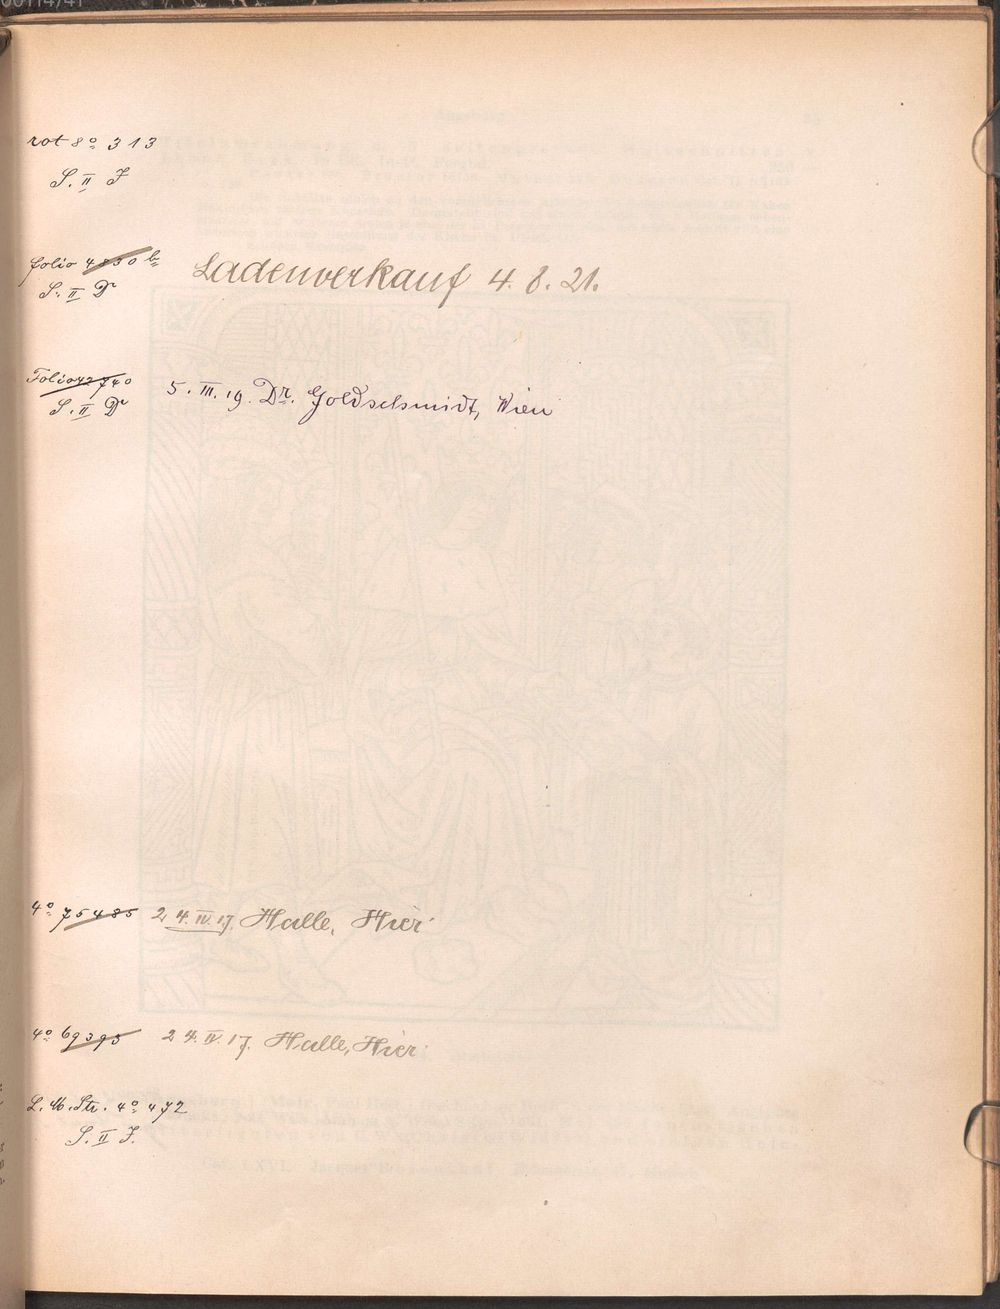 rot 8º 313
S. II J
folio 4830 b
S. II D
Ladenverkauf 4. 8. 21.
Folio 42740
S. II D
5. III. 19. Dr. Goldschmidt, Wien
4º 75485 24. IV. 17. Halle, Hier
4º 69395 24. IV. 17. Halle, Hier
4º 472
S. II J.